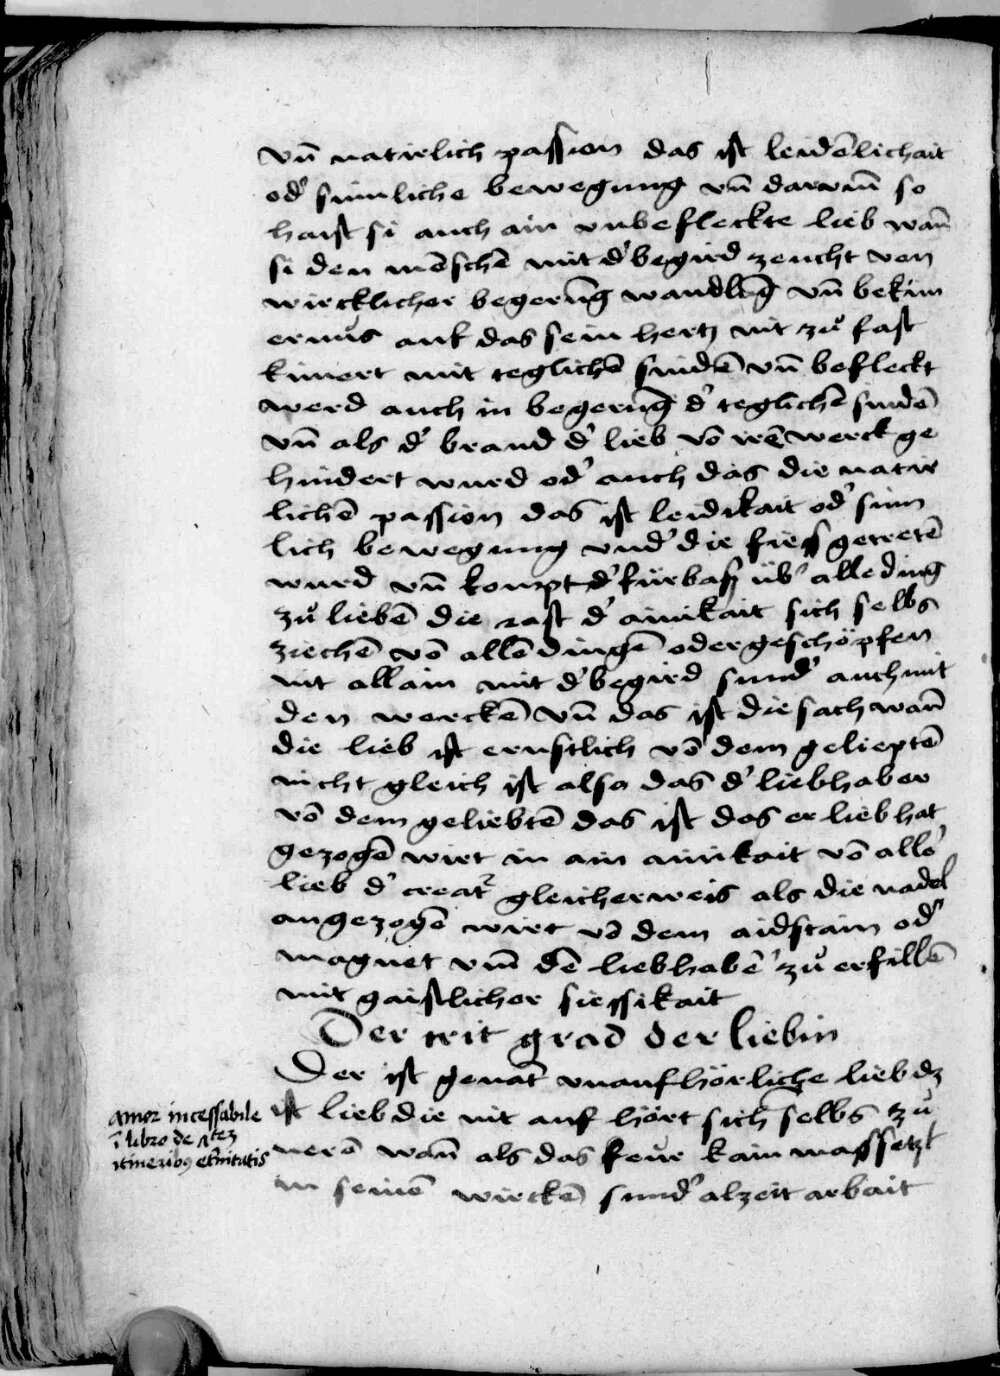 vn̄ natirlich passion das ist leidēlichait
od' sinnliche bewegung vn̄ darum̄ so
haist si auch ain vnbefleckte lieb wan̄
si den mēschē mit d' begird zeucht von
wircklicher begerūg wandlūg vn̄ bekim
ernus auf das sein hertz nit zů fast
kimert mit teglichē sindē vn̄ befleckt
werd auch in begerūg d' teglichē sindē
vn̄ als d' brand d' lieb vō irē werck ge
hindert wurd od' auch das die natir
lichē passion das ist leidikait od' sinn
lich bewegung vnd' die fiess getretē
wurd vn̄ kompt d' fürbaß üb' alle ding
zů liebē die rast d' ainikait sich selbs
ziechē vō allē dingē oder geschöpfen
nit allain mit d' begird sund' auch mit
den werckē vn̄ das ist die sach wan̄
die lieb ist ernstlich vō dem gelieptē
nicht gleich ist also das d' liebhaber
vō dem geliebtē das ist das er lieb hat
gezogē wirt in ain ainikait vō alle'
lieb d' creat' gleicherweis als die nadel
angezogē wirt vō dem aidstain od'
magnet vm̄ dē liebhabē' zů erfillē
mit gaistlicher siessikait
Der trit grad der liebin
Der ist genāt vnaufhörliche lieb dz
ist lieb die nit auf hört sich selbs zů
merē wan̄ als das feur kain mass setzt
in seinē wirckē sund' alzeit arbait
amor incessabile
ī libro de 7tez
itinerib9 et'nitatis